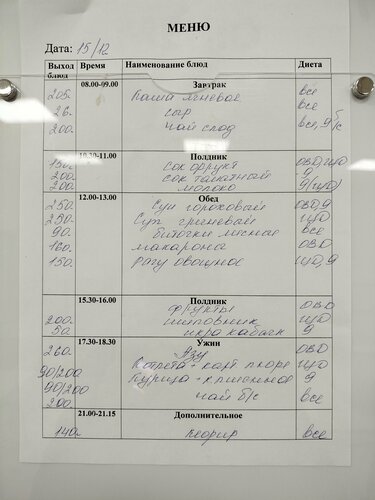 МЕНЮ
Дата: 15/12
Выход блюд Время Наименование блюд Диета
08.00-09.00 Завтрак
205. Каша ячневая все
26. сыр все
200. чай слад все, 9 б/с
10.30-11.00 Полдник
150. сок фрукт ОВО, ЩО
200. сок томатный 9
200. молоко 9 (ЩО)
12.00-13.00 Обед
250. Суп гороховый ОВО, 9
250. Суп гречневый ЩО
90. биточки мясные все
160. макароны ОВО
150. рагу овощное ЩО, 9
15.30-16.00 Полдник
фрукты ОВО
200. шиповник ЩО
50. икра кабачк 9
17.30-18.30 Ужин
260. Азу ОВО
90/200 Котлета + карт пюре ЩО
90/200 Курица + к пшеничное 9
200. чай б/с все
21.00-21.15 Дополнительное
140. кефир все